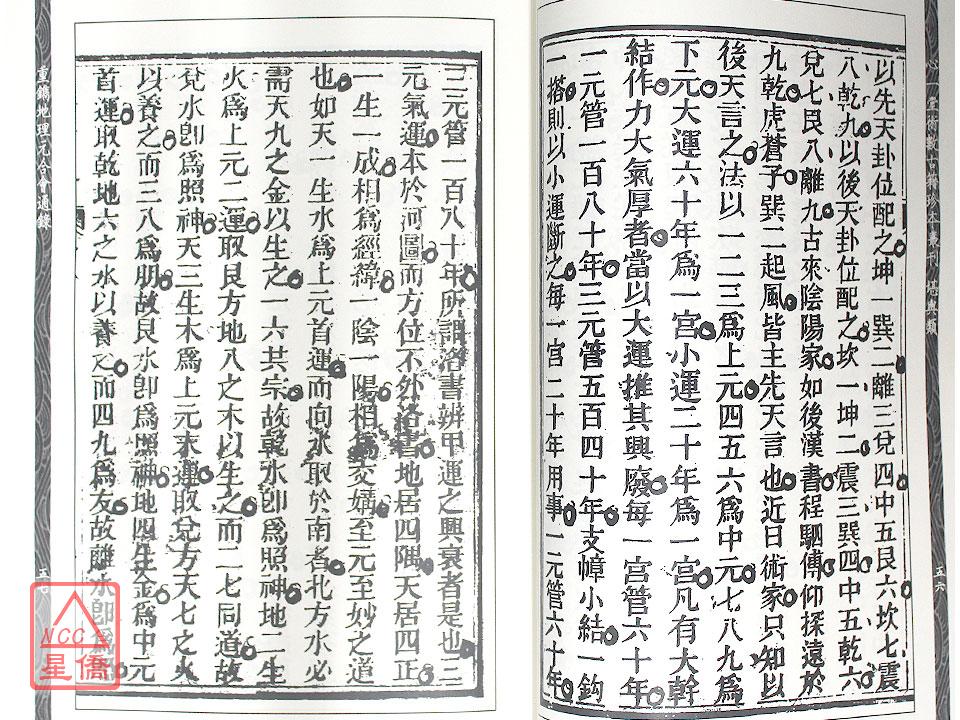 以先天卦位配之坤一巽二離三兌四中五艮六坎七震
八乾九以後天卦位配之坎一坤二震三巽四中五乾六
兌七艮八離九古來陰陽家如後漢書程駟傳仰探遠於
九乾虎蒼子巽二起風皆主先天言也近日術家只知以
後天言之法以一二三為上元四五六為中元七八九為
下元大運六十年為一宮小運二十年為一宮凡有大幹
結作力大氣厚者當以大運推其興廢每一宮管六十年
一元管一百八十年三元管五百四十年支幛小結一鈎
一搭則以小運斷之每一宮二十年用事一元管六十年
心一堂術數古籍珍本叢刊 堪輿類
五六
三元管一百八十年所謂洛書辨甲運之興衰者是也三
元氣運本於河圖而方位不外洛書地居四隅天居四正
一生一成相為經緯一陰一陽相交媾至元至妙之道
也如天一生水為上元首運而向水取於南者北方水必
需天九之金以生之一六共宗故乾水卽為照神地二生
火為上元二運取艮方地八之木以生之而二七同道故
兌水卽為照神天三生木為上元末運取兌方天七之火
以養之而三八為朋故艮水卽為照神地四生金為中元
首運取乾地六之水以養之而四九為友故離水卽為
重鐫地理元合會通錄
五七
NCC
星僑